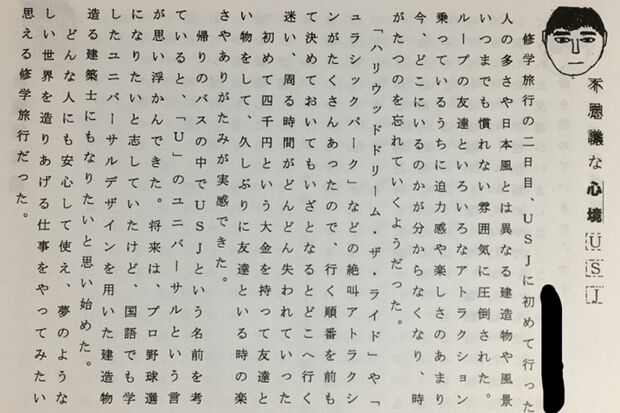 不思議な心境USJ
修学旅行の二日目、USJに初めて行った
人の多さや日本風とは異なる建造物や風景
いつまでも慣れない雰囲気に圧倒された。
ループの友達といろいろなアトラクション
乗っているうちに迫力感や楽しさのあまり
今、どこにいるのかが分からなくなり、時
がたつのを忘れていくようだった。
「ハリウッドドリーム・ザ・ライド」や「
ュラシックパーク」などの絶叫アトラクシ
ンがたくさんあったので、行く順番を前も
て決めておいてもいざとなるとどこへ行く
迷い、周る時間がどんどん失われていった
初めて四千円という大金を持って友達と
い物をして、久しぶりに友達といる時の楽
さやありがたみが実感できた。
帰りのバスの中でUSJという名前を考
ていると、「U」のユニバーサルという言
が思い浮かんできた。将来は、プロ野球選
になりたいと志していたけど、国語でも学
したユニバーサルデザインを用いた建造物
造る建築士にもなりたいと思い始めた。
どんな人にも安心して使え、夢のような
しい世界を造りあげる仕事をやってみたい
思える修学旅行だった。